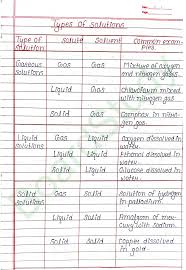 Types of Solutions.
Type of solution Solute Solvent Common exam-ples.
Gaseous solutions Gas Gas Mixture of oxygen and nitrogen gases.
Liquid Gas Chloroform mixed with nitrogen gas
Solid Gas Camphor in nitro-gen gas.
Liquid solutions Gas Liquid Oxygen dissolved in water.
Liquid Liquid Ethanol dissolved in water.
Solid Liquid Glucose dissolved in water.
Solid solutions Gas Solid Solution of hydrogen in palladium.
Liquid Solid Amalgam of mer-cury with sodium.
Solid Solid Copper dissolved in gold.